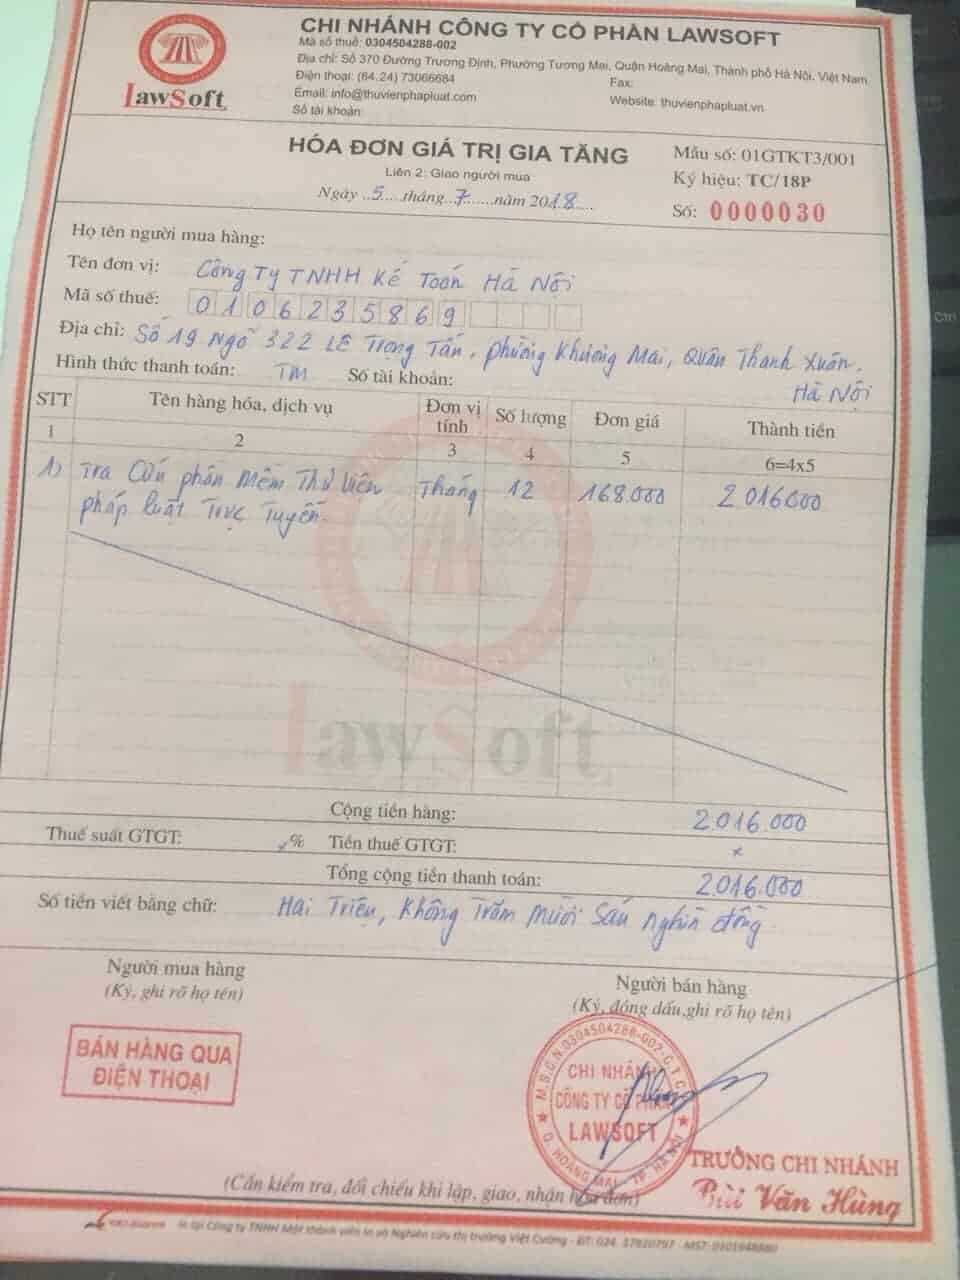 CHI NHÁNH CÔNG TY CỔ PHẦN LAWSOFT
Mã số thuế: 0304504288-002
Địa chỉ: Số 370 Đường Trương Định, Phường Tương Mai, Quận Hoàng Mai, Thành phố Hà Nội, Việt Nam
Điện thoại: (84.24) 73066684 Fax:
Email: info@thuvienphapluat.com Website: thuvienphapluat.vn
Số tài khoản:
LawSoft
HÓA ĐƠN GIÁ TRỊ GIA TĂNG
Liên 2: Giao người mua
Ngày 5 tháng 7 năm 2018
Mẫu số: 01GTKT3/001
Ký hiệu: TC/18P
Số: 0000030
Họ tên người mua hàng:
Tên đơn vị: Công Ty TNHH Kế Toán Hà Nội
Mã số thuế: 0106235869
Địa chỉ: Số 19 Ngõ 322 Lê Trọng Tấn, phường Khương Mai, Quận Thanh Xuân,
Hà Nội
Hình thức thanh toán: TM Số tài khoản:
STT Tên hàng hóa, dịch vụ Đơn vị tính Số lượng Đơn giá Thành tiền
1 2 3 4 5 6=4x5
1) Tra Cứu phần Mềm Thư Viện Tháng 12 168.000 2 016000
pháp luật Trực Tuyến.
LawSoft
Cộng tiền hàng: 2.016.000
Thuế suất GTGT: x% Tiền thuế GTGT: x
Tổng cộng tiền thanh toán: 2.016.000
Số tiền viết bằng chữ: Hai Triệu, Không Trăm Mười Sáu nghìn đồng
Người mua hàng
(Ký, ghi rõ họ tên)
Người bán hàng
(Ký, đóng dấu,ghi rõ họ tên)
BÁN HÀNG QUA
ĐIỆN THOẠI
M.S.C.N:0304504288-002-C.T.C.
CHI NHÁNH
CÔNG TY CỔ PHẦN
LAWSOFT
Q. HOÀNG MAI - TP. HÀ NỘI
TRƯỞNG CHI NHÁNH
Bùi Văn Hùng
(Cần kiểm tra, đối chiếu khi lập, giao, nhận hóa đơn)
In tại Công ty TNHH Một thành viên In và Nghiên cứu thị trường Việt Cường - ĐT: 024. 37820797 - MST: 0101948880